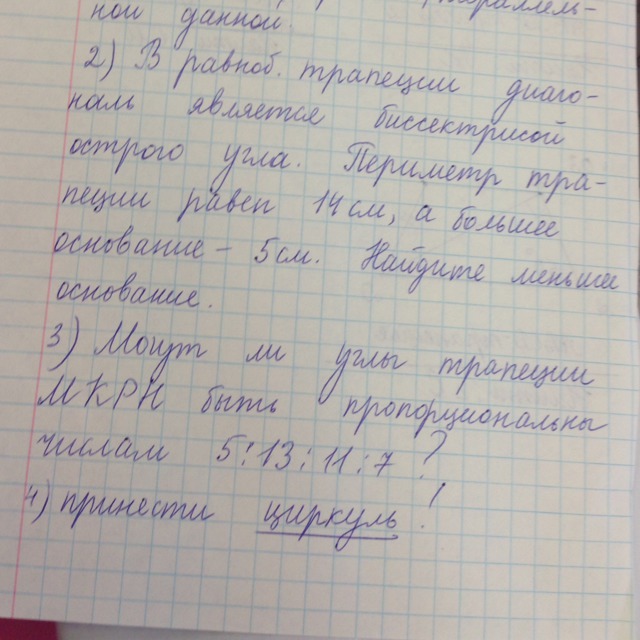 ной данной.
2) В равноб. трапеции диаго-
наль является биссектрисой
острого угла. Периметр тра-
пеции равен 14 см, а большее
основание – 5 см. Найдите меньшее
основание.
3) Могут ли углы трапеции
МКРН быть пропорциональны
числам 5:13:11:7?
4) принести циркуль!